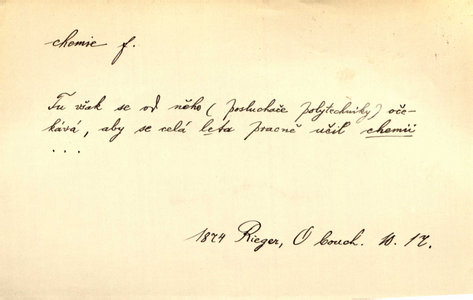 chemie f.
Tu však se od něho (posluchače polytechniky) oče-
kává, aby se celá leta pracně učil chemii
...
1874 Rieger, O Couch. 17.